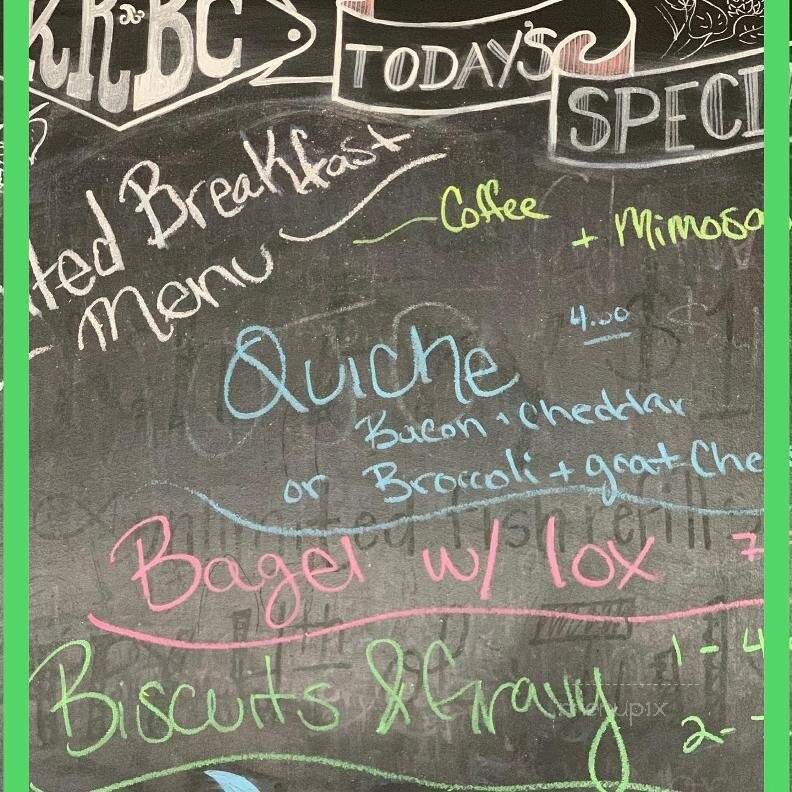 KR&BC
TODAY'S
SPECI
ited Breakfast
Menu
Coffee
+ Mimosa
Quiche 4.00
Bacon + Cheddar
or Broccoli + goat Che
Bagel w/ lox 7
unlimited fish refill
Biscuits & Gravy 1 - 4
2 -
menupix